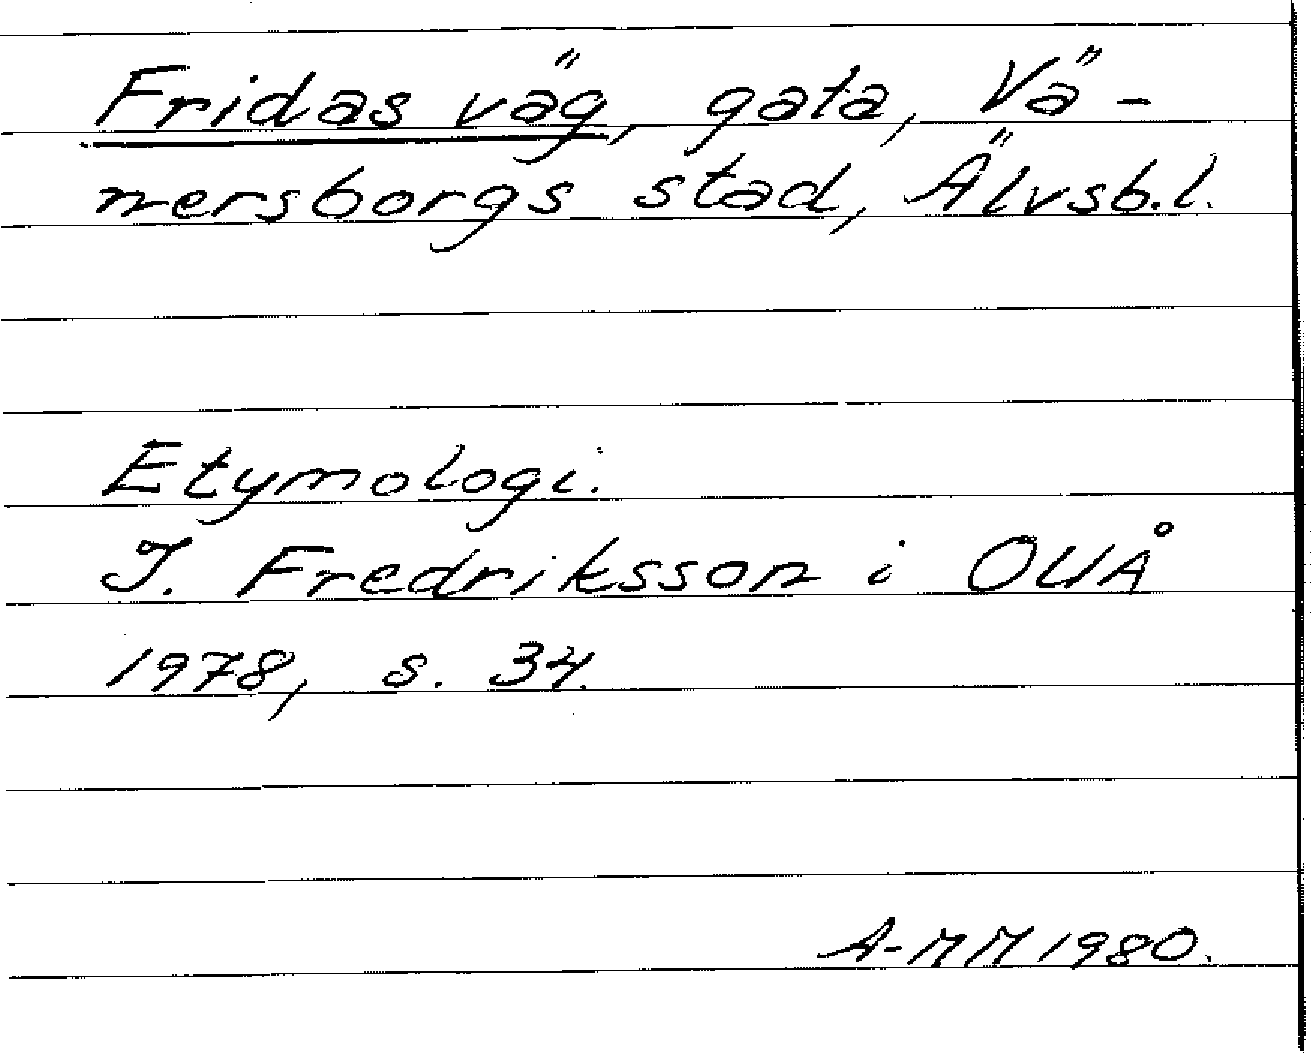 Fridas väg, gata, Vä-
nersborgs stad, Älvsb.l.
Etymologi.
I. Fredriksson i OUÅ
1978, s. 34.
A-MM 1980.